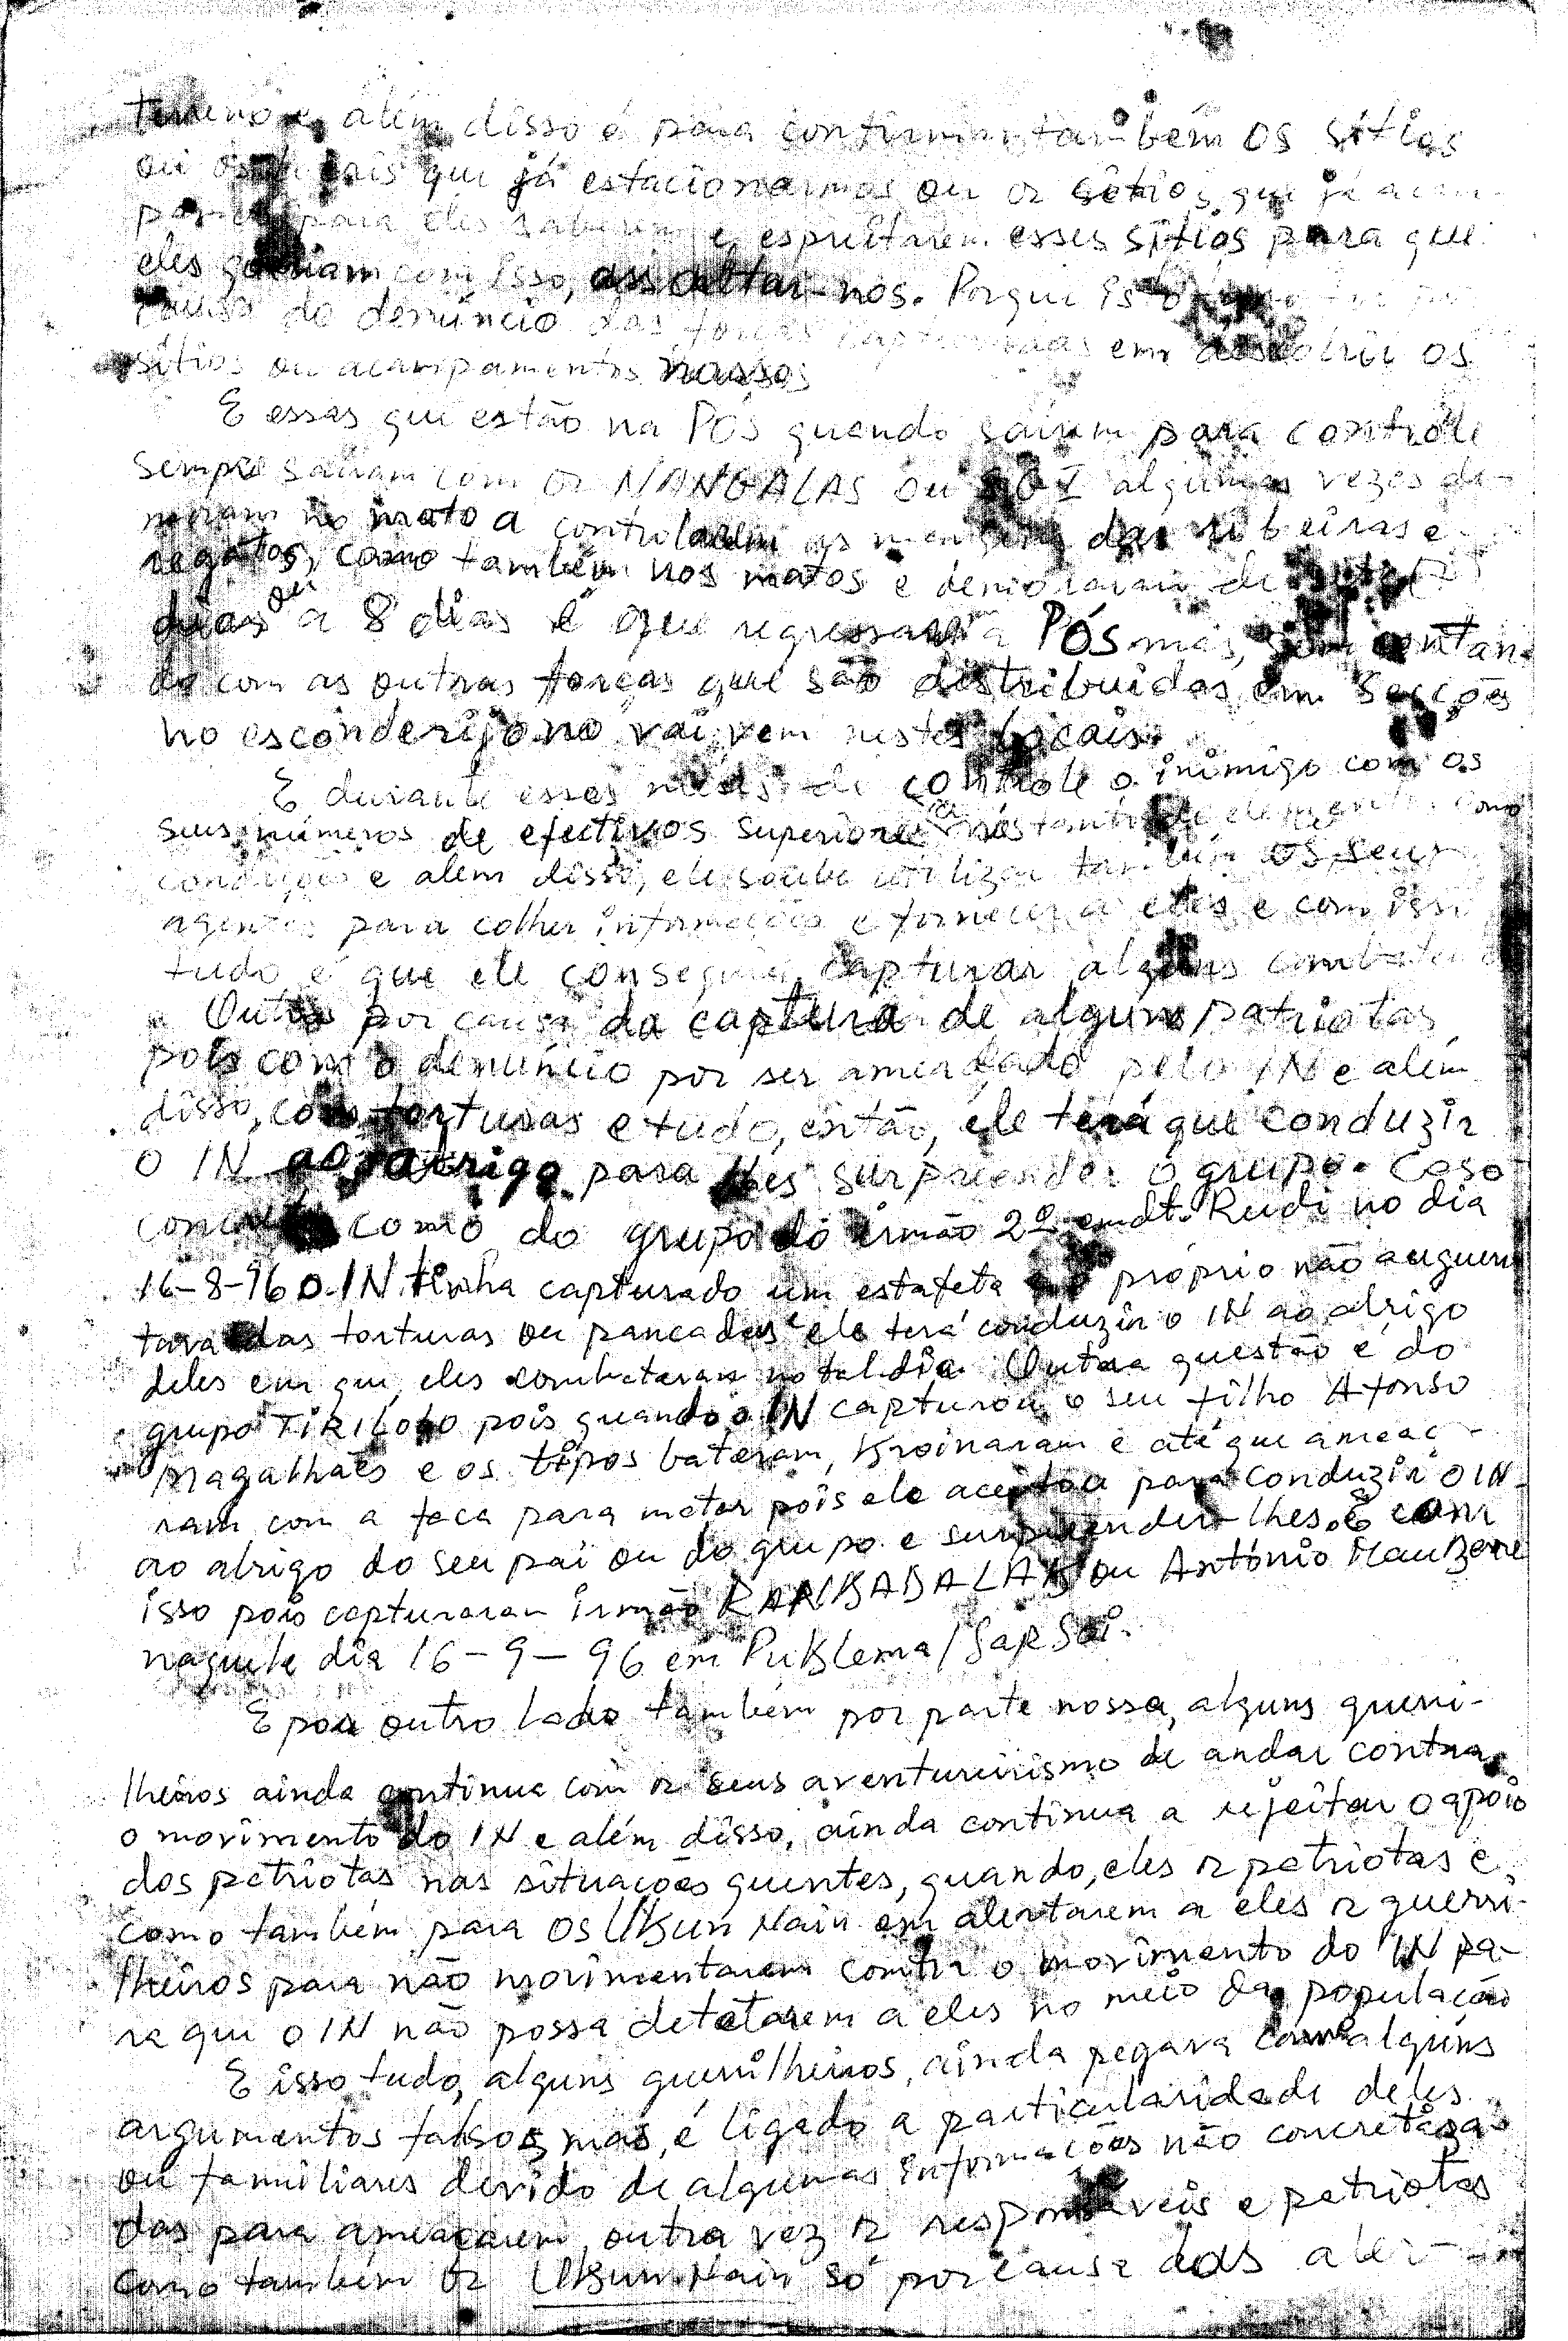 terreno e, além disso é para confirmar também os sítios
ou os locais que já estacionarmos ou os sítios que já acam-
para eles saberem e, espreitarem esses sítios para que
eles com isso, assaltar-nos. Porque isto
causa do denúncio das forças capturadas em descobrir os
sítios ou acampamentos nossos
E essas que estão na Pós quando sairem para controle
sempre sairam com os NANGALAS ou algumas vezes de-
moram no mato a controlarem as margens das ribeiras e
regatos, como também nos matos e demoraram de sete (7)
dias ou a 8 dias é que regressam a Pós mas, sem contan-
do com as outras forças que são distribuidas em secções
no esconderijo no vai vem nestes locais.
E durante esses meses de controle o inimigo com os
seus números de efectivos superiores a nós tanto de elementos como
condições e alem disso, ele soube utilizar também os seus
agentes para colher informações e fornecer a eles e com isso
tudo é que ele conseguiu capturar alguns combatentes
Outros por causa da captura de alguns patriotas
pois com o denúncio por ser ameaçado pelo IN e além
disso, com torturas e tudo, então, ele terá que conduzir
o IN ao abrigo para lhes surpreender o grupo. Caso
concreto como do grupo do irmão 2º cmdt. Rudi no dia
16-8-96 o IN tinha capturado um estafeta e o próprio não aguen-
tava das torturas ou pancadas e ele terá conduzir o IN ao abrigo
deles em que eles combateram no tal dia. Outra questão é do
grupo TIRILOLO pois quando o IN capturou o seu filho Afonso
Magalhães e os tipos bateram, Kroinaram e até que ameaç-
ram com a faca para matar pois ele aceitou para conduzir o IN
ao abrigo do seu pai ou do grupo e surpreender-lhes. E com
isso pois capturaram irmão RANKADALAK ou António MauBere
naquele dia 16-9-96 em PuKlema/SaRSoi.
E por outro lado também por parte nossa, alguns guerri-
lheiros ainda continua com os seus aventureirismo de andar contra
o movimento do IN e além disso, ainda continua a rejeitar o apoio
dos patriotas nas situações quentes, quando, eles os patriotas e
como também para os UKun Nain em alertarem a eles os guerri-
lheiros para não movimentarem contra o movimento do IN pa-
ra que o IN não possa detatarem a eles no meio da população
E isso tudo, alguns guerrilheiros, ainda pegava com alguns
argumentos falsos mas, é ligado a particularidade deles
ou familiares devido de algumas informações não concretiza-
das para ameaçarem outra vez os responsáveis e patriotas
como também os UKun Nain só por causa das aler-